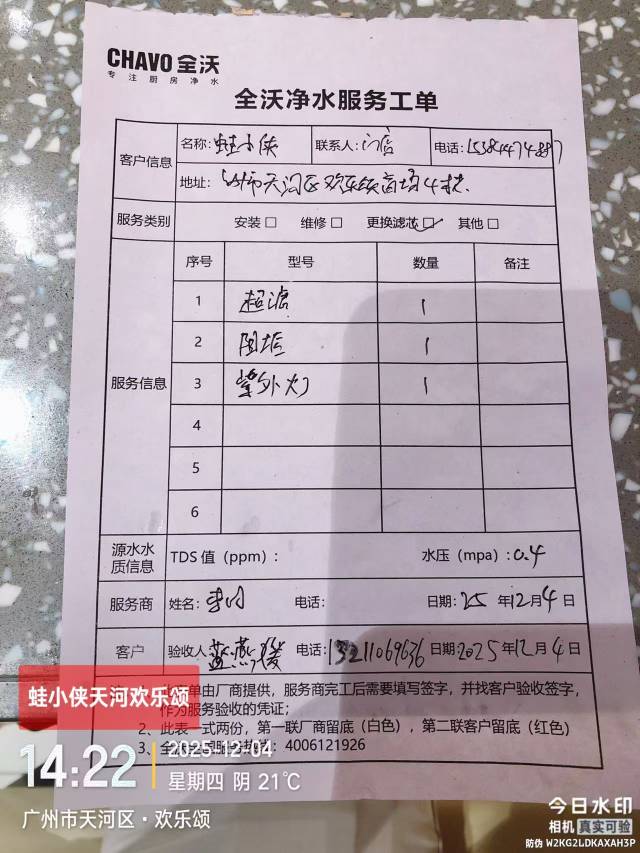 CHAVO 全沃
专注厨房净水
全沃净水服务工单
客户信息 名称: 蛙小侠 联系人: 电话:
地址: 天河区欢乐颂商场4楼
服务类别 安装□ 维修□ 更换滤芯☑ 其他□
服务信息 序号 型号 数量 备注
1 超滤 1
2 阻垢 1
3 紫外灯 1
4
5
6
源水水质信息 TDS 值（ppm）: 水压（mpa）: 0.4
服务商 姓名: 电话: 日期: 25 年 12 月 4 日
客户 验收人: 电话: 13211069636 日期: 2025 年 12 月 4 日
单由厂商提供，服务商完工后需要填写签字，并找客户验收签字，
作为服务验收的凭证；
2、此表一式两份，第一联厂商留底（白色），第二联客户留底（红色）
3、全 4006121926
蛙小侠天河欢乐颂
14:22
2025-12-04
星期四 阴 21℃
广州市天河区·欢乐颂
今日水印
相机 真实可验
防伪 W2KG2LDKAXAH3P